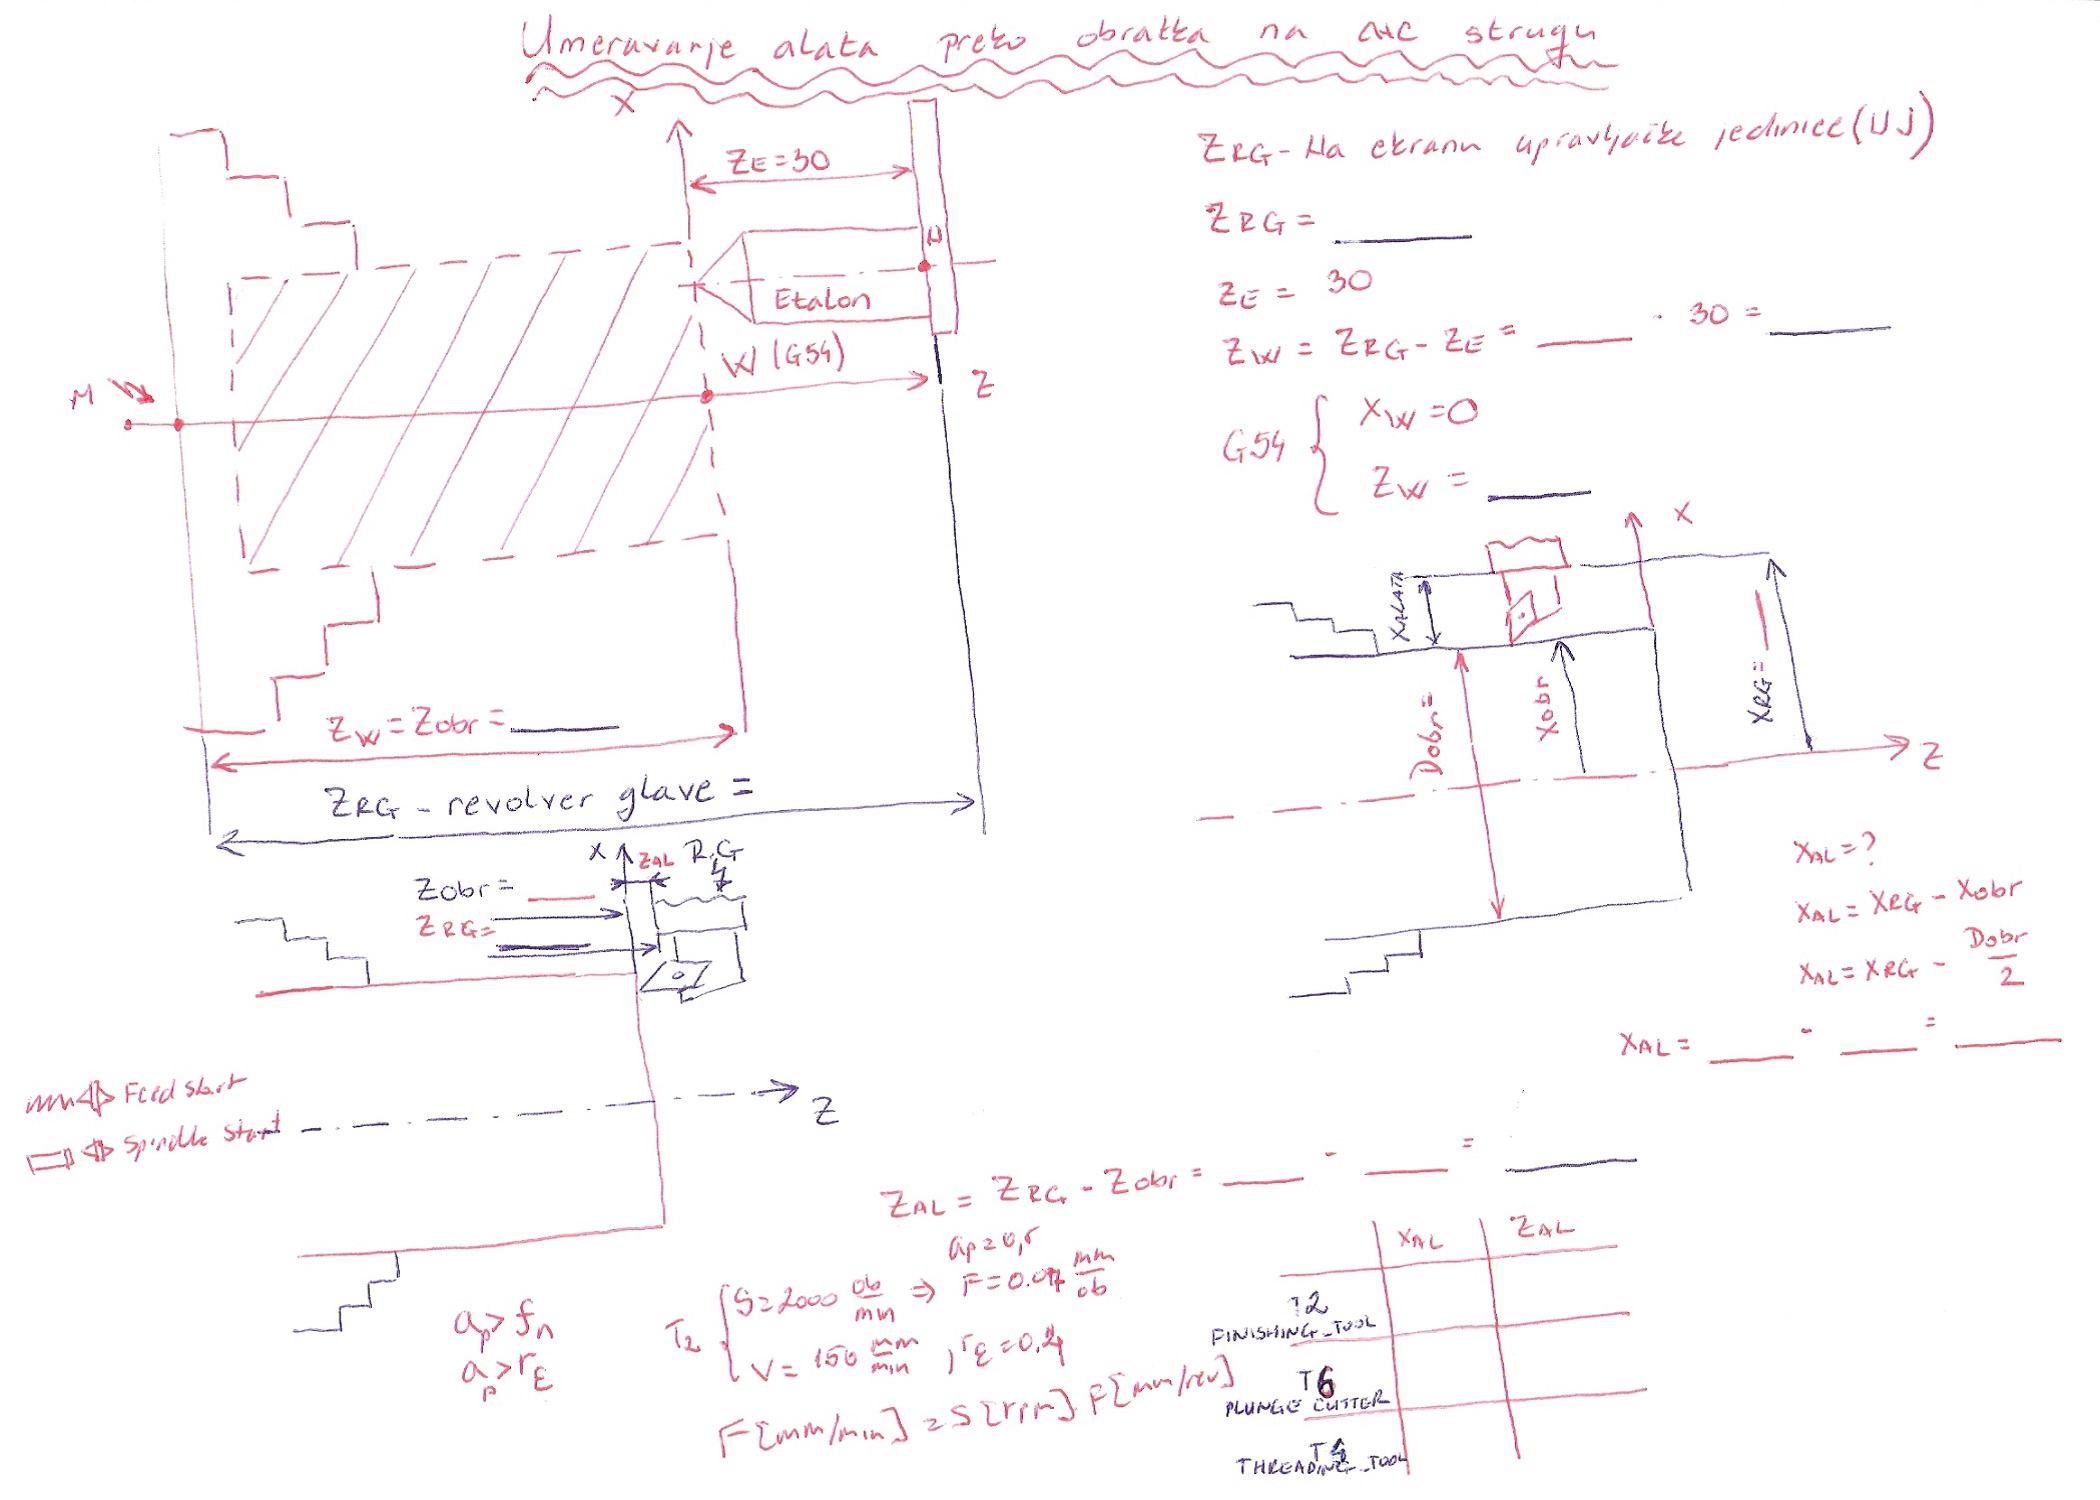 Umeravanje alata preko obratka na CNC strugu
X
ZE=30
N
Etalon
W (G54)
Z
M
ZW = Zobr = ____
ZRG - revolver glave =
ZRG - Na ekranu upravljačke jedinice (UJ)
ZRG = ____
ZE = 30
ZW = ZRG - ZE = ____ - 30 = ____
G54 { XW = 0
ZW = ____
X
XALATA
Dobr=
Xobr
XRG= ____
Z
XAL = ?
XAL = XRG - Xobr
XAL = XRG - Dobr/2
XAL = ____ - ____ = ____
X ZAL R.G
Zobr = ____
ZRG= ____
Z
Feed start
Spindle start
ZAL = ZRG - Zobr = ____ - ____ = ____
ap > fn
ap > rE
ap = 0,5
T2 { S = 2000 ob/min ⇒ F = 0.07 mm/ob
V = 150 mm/min , rE = 0.4
F[mm/min] = S[rpm] · F[mm/rev]
XAL ZAL
T2
FINISHING_TOOL
T6
PLUNGE CUTTER
T4
THREADING_TOOL